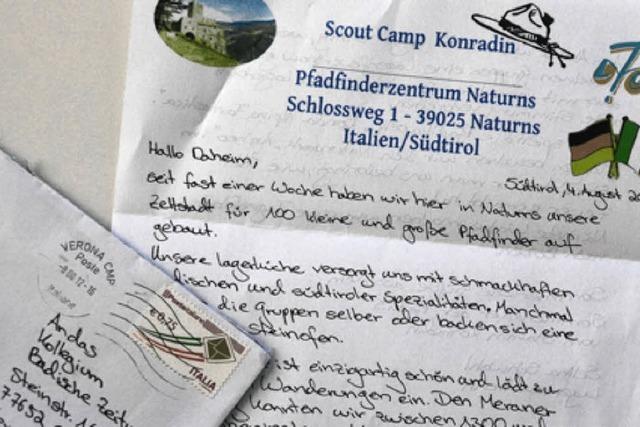 Scout Camp Konradin
Pfadfinderzentrum Naturns
Schlossweg 1 - 39025 Naturns
Italien/Südtirol
Südtirol, 4. August 20
Hallo Daheim,
seit fast einer Woche haben wir hier in Naturns unsere
Zeltstadt für 100 kleine und große Pfadfinder auf
gebaut.
Unsere Lagerküche versorgt uns mit schmackhaften
dischen und südtiroler Spezialitäten. Manchmal
die Gruppen selber oder backen sich eine
Steinofen.
ist einzigartig schön und lädt zu
Wanderungen ein. Den Meraner
konnten wir zwischen 1300 und
VERONA CMP
Poste
Italiane
ITALIA
An das
Kollegium
Badische Zeitu
Steinstr.
77652